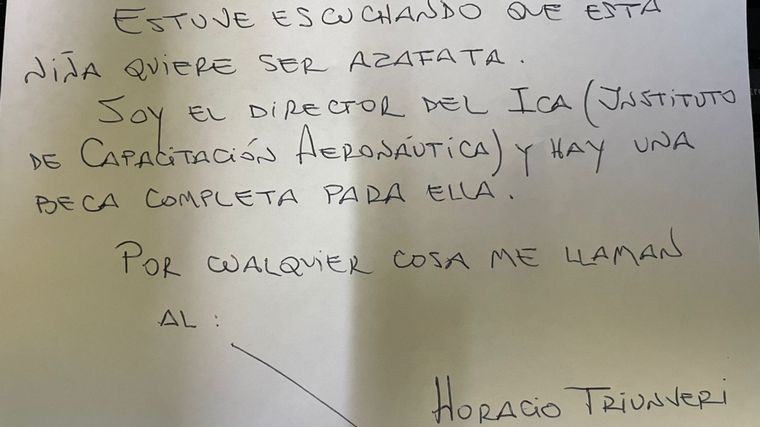 ESTUVE ESCUCHANDO QUE ESTA
NIÑA QUIERE SER AZAFATA.
SOY EL DIRECTOR DEL ICA (INSTITUTO
DE CAPACITACIÓN AERONÁUTICA) Y HAY UNA
BECA COMPLETA PARA ELLA.
POR CUALQUIER COSA ME LLAMAN
AL:
HORACIO TRIUNVERI